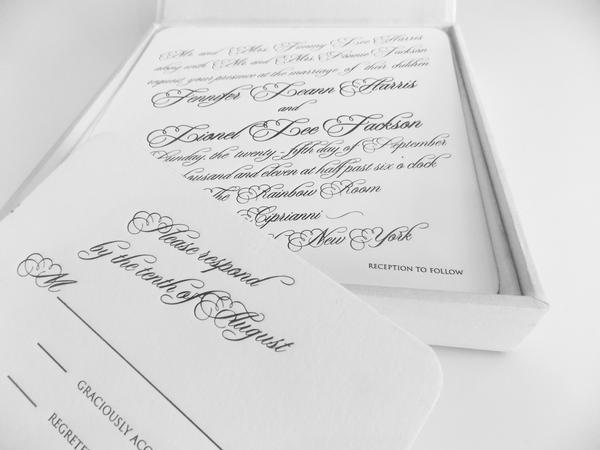 Mr. and Mrs. Timmy Lee Harris
along with Mr. and Mrs. Lonnie Jackson
request your presence at the marriage of their children
Jennifer Leann Harris
and
Lionel Lee Jackson
Sunday, the twenty-fifth day of September
thousand and eleven at half past six o'clock
The Rainbow Room
Ciprianni
New York
RECEPTION TO FOLLOW
Please respond
by the tenth of August
M
GRACIOUSLY ACC
REGRETF